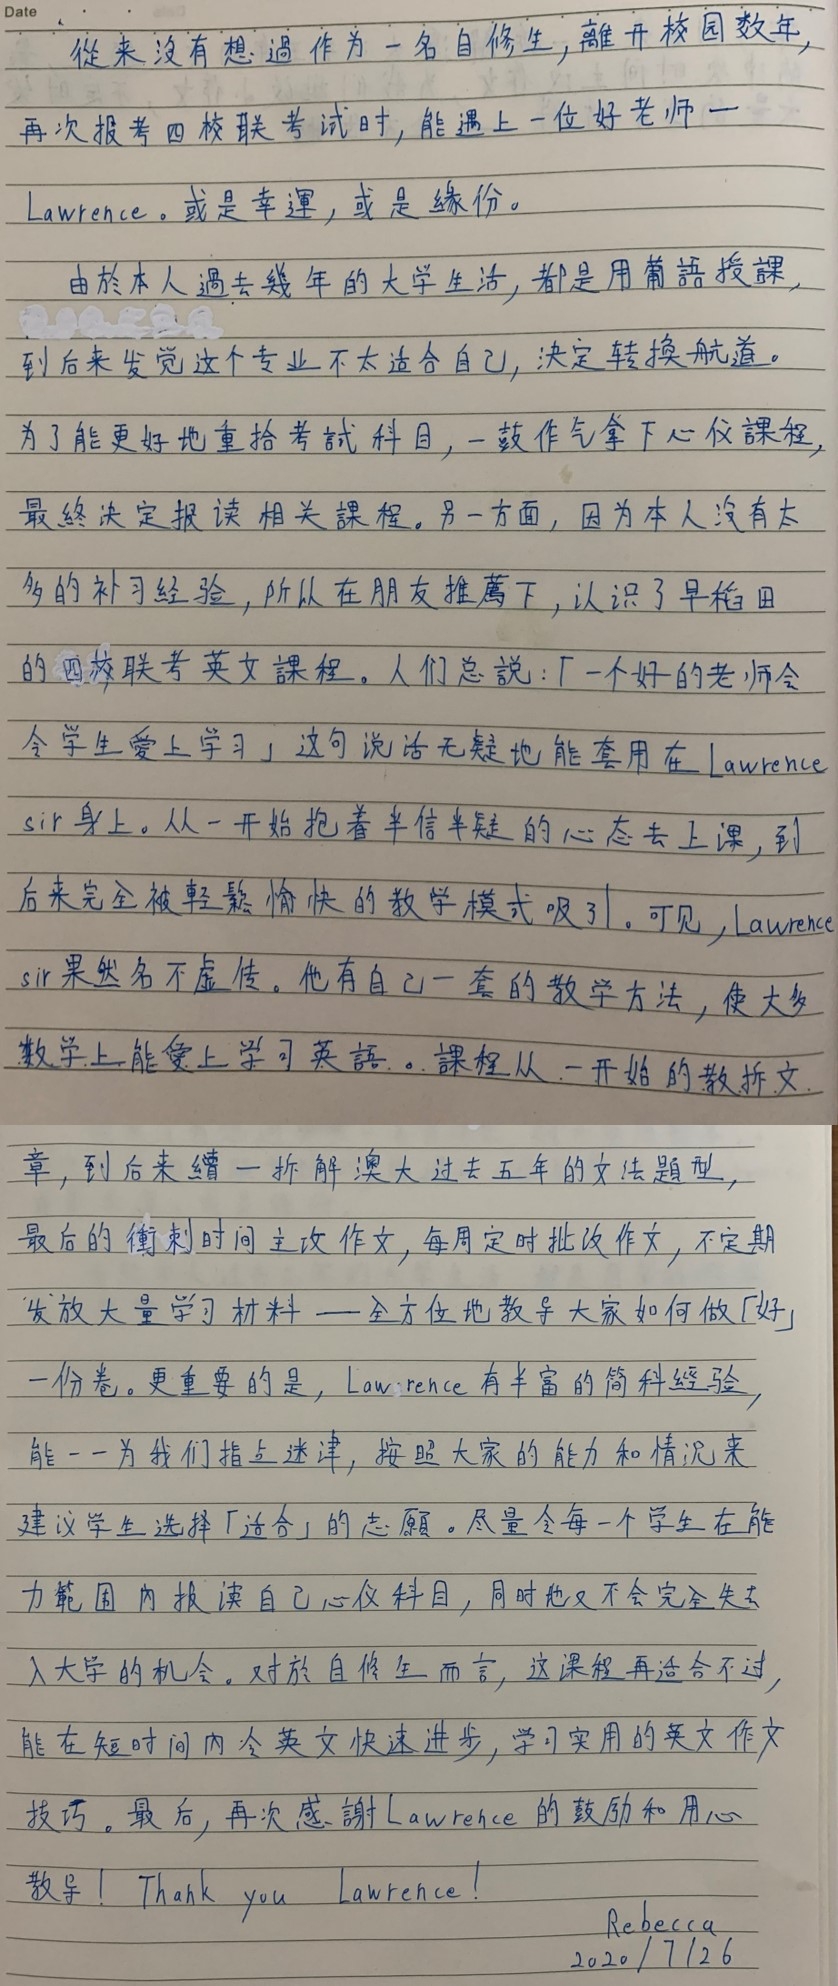 Date
從来沒有想過作为一名自修生,離开校园数年,
再次报考四校联考试时,能遇上一位好老师—
Lawrence。或是幸運,或是緣份。
由於本人過去幾年的大学生活,都是用葡語授課,
到后来发觉这个专业不太适合自己,决定转换航道。
为了能更好地重拾考試科目,一鼓作气拿下心仪課程,
最終决定报读相关課程。另一方面,因为本人没有太
多的补习经验,所以在朋友推薦下,认识了早稻田
的四校联考英文課程。人们总説:「一个好的老师会
令学生爱上学习」这句说话无疑地能套用在Lawrence
sir身上。从一开始抱着半信半疑的心态去上课,到
后来完全被輕鬆愉快的教学模式吸引。可见,Lawrence
sir果然名不虚传。他有自己一套的教学方法,使大多
数学上能愛上学习英語。課程从一开始的教拆文
章,到后来續一拆解澳大过去五年的文法題型,
最后的衝刺时间主攻作文,每周定时批改作文,不定期
发放大量学习材料——全方位地教导大家如何做「好」
一份卷。更重要的是,Lawrence有丰富的简科經验,
能一一为我们指点迷津,按照大家的能力和情况来
建议学生选择「适合」的志愿。尽量令每一个学生在能
力範围内报读自己心仪科目,同时也又不会完全失去
入大学的机会。对於自修生而言,这课程再适合不过,
能在短时间内令英文快速进步,学习实用的英文作文
技巧。最后,再次感謝Lawrence的鼓励和用心
教导! Thank you Lawrence!
Rebecca
2020/7/26